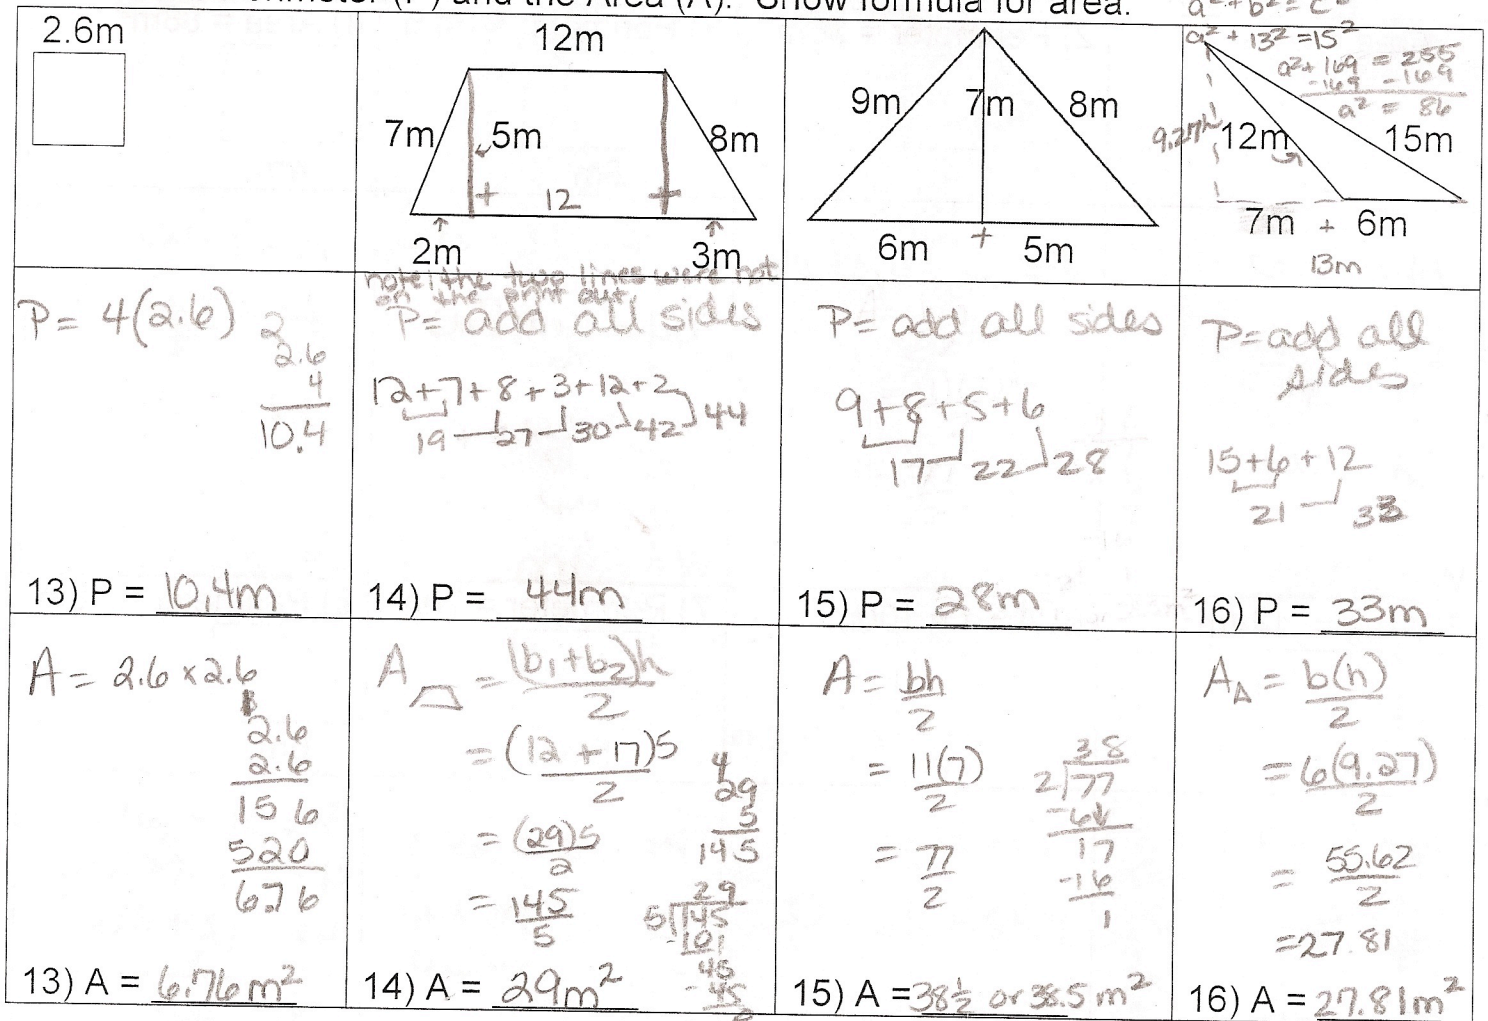 (P) and the Area (A). Show formula for area.
a² + b² = c²
2.6m
12m
7m
5m
8m
12
2m
3m
9m
7m
8m
6m
5m
a² + 13² = 15²
a² + 169 = 255
-169 -169
a² = 86
9.27
12m
15m
7m + 6m
13m
note: the two lines were not
on the print out.
P = 4(2.6)
2
2.6
4
10.4
13) P = 10.4m
P = add all sides
12+7+8+3+12+2
19 27 30 42 44
14) P = 44m
P = add all sides
9+8+5+6
17 22 28
15) P = 28m
P = add all
sides
15+6+12
21 33
16) P = 33m
A = 2.6 x 2.6
2.6
2.6
156
520
6.76
13) A = 6.76m²
A = (b₁+b₂)h
2
= (12 + 17)5
2
= (29)5
2
= 145
5
4
29
5
145
29
5 145
-10
45
-45
14) A = 29m²
A = bh
2
= 11(7)
2
= 77
2
38
2 77
-6
17
-16
1
15) A = 38½ or 38.5m²
A = b(h)
2
= 6(9.27)
2
= 55.62
2
= 27.81
16) A = 27.81m²